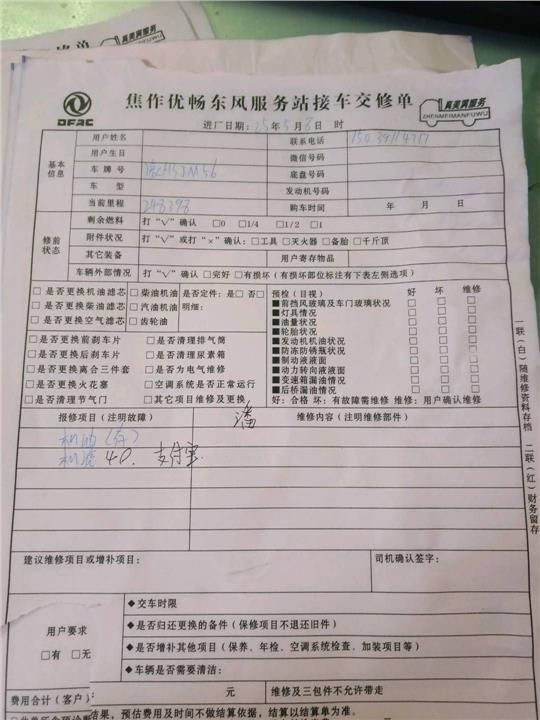 真美满服务
焦作优畅东风服务站接车交修单
真美满服务
ZHENMEIMANFUWU
DFAC
进厂日期：25年5月8日 时
基本信息
用户姓名
联系电话
用户生日
微信号码
车牌号
底盘号码
车型
发动机号码
当前里程 248398
购车时间 年 月 日
修前状态
剩余燃料 打“√”确认 □0 □1/4 □1/2 □1
附件状况 打“√”或打“×”确认：□工具 □灭火器 □备胎 □千斤顶
其它装备
用户寄存物品
车辆外部情况 打“√”确认 □完好 □有损坏（有损坏部位标注有下表左侧选项）
□是否更换机油滤芯 □柴油机油 是否定件：是□ 否□
□是否更换柴油滤芯 □汽油机油 明细：
□是否更换空气滤芯 □齿轮油
□是否更换前刹车片 □是否清理排气筒
□是否更换后刹车片 □是否清理尿素箱
□是否更换离合三件套 □是否为电气维修
□是否更换火花塞 □空调系统是否正常运行
□是否清理节气门 □其它项目维修及更换
预检（目视） 好 坏 维修
■前挡风玻璃及车门玻璃状况 □ □ □
■灯具情况 □ □ □
■油量状况 □ □ □
■轮胎状况 □ □ □
■发动机机油状况 □ □ □
■防冻防锈瓶状况 □ □ □
■制动液液面 □ □ □
■动力转向液液面 □ □ □
■变速箱漏油情况 □ □ □
■后桥漏油情况 □ □ □
好：合格 坏：有故障需维修 维修：用户确认维修
报修项目（注明故障） 潘
维修内容（注明维修部件）
机油（存）
机滤 40. 支付宝
建议维修项目或增补项目：
司机确认签字：
用户要求
□有 □无
◆交车时限
◆是否归还更换的备件（保修项目不退还旧件）
◆是否增补其他项目（保养、年检、空调系统检查、加装项目等）
◆车辆是否需要清洁：
费用合计（客户） 元
维修及三包件不允许带走
结果，预估费用及时间不做结算依据，结算以结算单为准。
一联（白）随维修资料存档 二联（红）财务留存